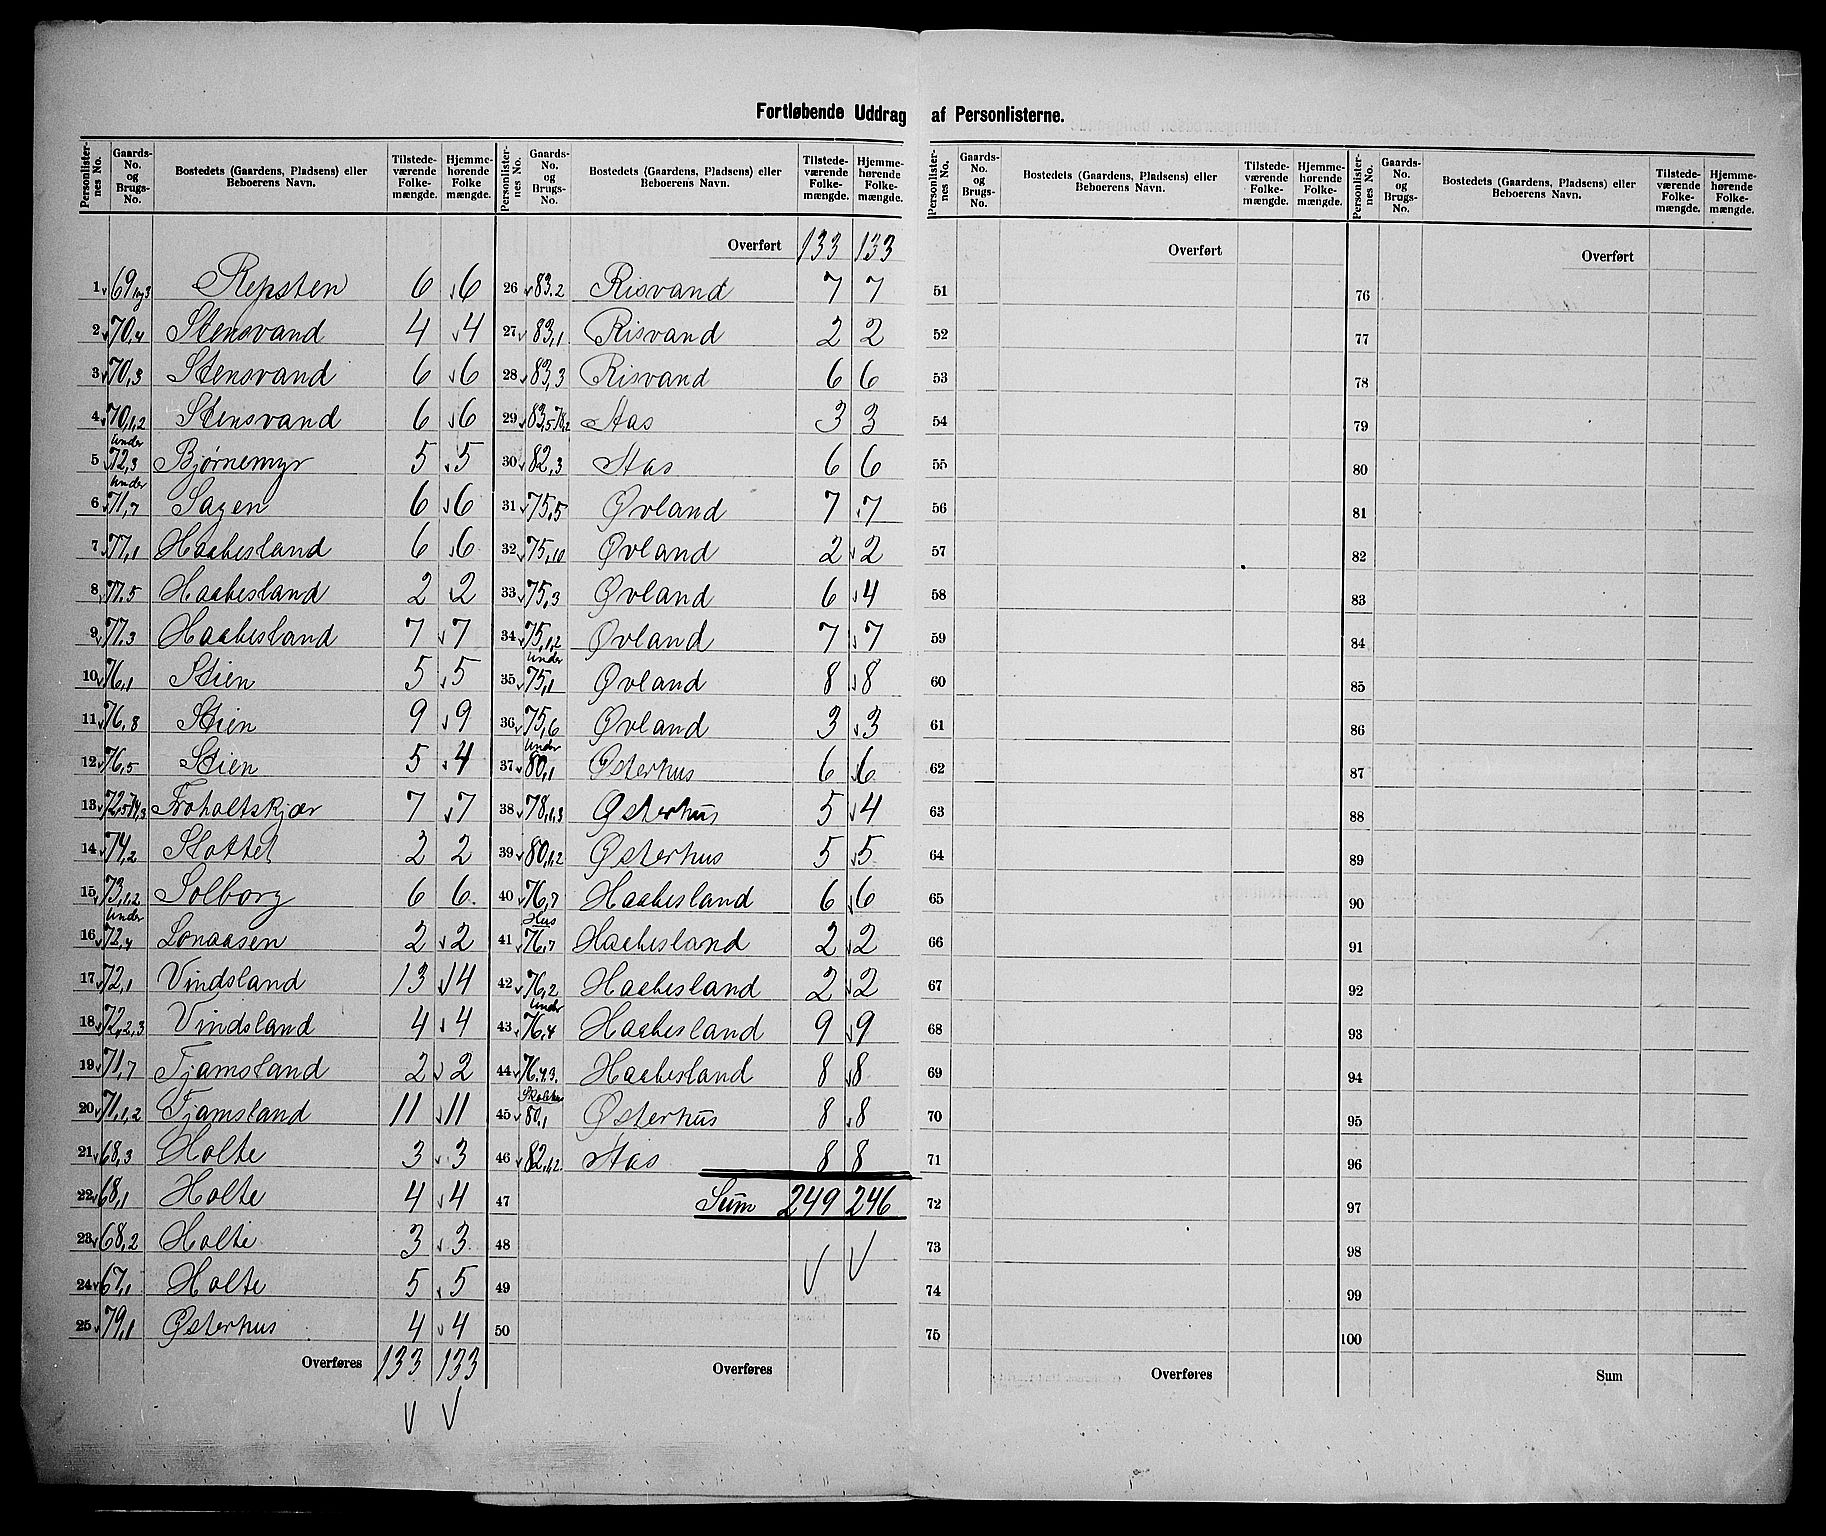 Fortløbende Uddrag af Personlisterne.
Personlister-nes No. | Gaards-No. og Brugs-No. | Bostedets (Gaardens, Pladsens) eller Beboerens Navn. | Tilstede-værende Folke-mængde. | Hjemme-hørende Folke mængde.
1 69,1og3 Repsten 6 6
2 70,4 Stensvand 4 4
3 70,3 Stensvand 6 6
4 70,1,2 Stensvand 6 6
5 Under 72,3 Bjørnemyr 5 5
6 Under 71,7 Sagen 6 6
7 77,1 Haabesland 6 6
8 77,5 Haabesland 2 2
9 77,3 Haabesland 7 7
10 76,1 Stien 5 5
11 76,8 Stien 9 9
12 76,5 Stien 5 4
13 72,5 74,3 Froholtskjær 7 7
14 74,2 Slottet 2 2
15 73,1,2 Solborg 6 6
16 Under 72,4 Lonaasen 2 2
17 72,1 Vindsland 13 14
18 72,2,3 Vindsland 4 4
19 71,7 Fjamsland 2 2
20 71,1,2 Fjamsland 11 11
21 68,3 Holte 3 3
22 68,1 Holte 4 4
23 68,2 Holte 3 3
24 67,1 Holte 5 5
25 79,1 Østerhus 4 4
Overføres 133 133
Personlister-nes No. | Gaards-No. og Brugs-No. | Bostedets (Gaardens, Pladsens) eller Beboerens Navn. | Tilstede-værende Folke-mængde. | Hjemme-hørende Folke-mængde.
Overført 133 133
26 83,2 Risvand 7 7
27 83,1 Risvand 2 2
28 83,3 Risvand 6 6
29 83,5 78,2 Aas 3 3
30 82,3 Aas 6 6
31 75,5 Øvland 7 7
32 75,10 Øvland 2 2
33 75,3 Øvland 6 4
34 75,1,2 Øvland 7 7
35 Under 75,1 Øvland 8 8
36 75,6 Øvland 3 3
37 Under 80,1 Østerhus 6 6
38 78,1,3 Østerhus 5 4
39 80,1,2 Østerhus 5 5
40 76,7 Haabesland 6 6
41 Hus 76,7 Haabesland 2 2
42 76,2 Haabesland 2 2
43 Under 76,4 Haabesland 9 9
44 76,4,3. Haabesland 8 8
45 Skolehus 80,1 Østerhus 8 8
46 82,1,2 Aas 8 8
47 Sum 249 246
48
49
50
Overføres
Personlister-nes No. | Gaards-No. og Brugs-No. | Bostedets (Gaardens, Pladsens) eller Beboerens Navn. | Tilstede-værende Folke-mængde. | Hjemme-hørende Folke-mængde.
Overført
51
52
53
54
55
56
57
58
59
60
61
62
63
64
65
66
67
68
69
70
71
72
73
74
75
Overføres
Personlister-nes No. | Gaards-No. og Brugs-No. | Bostedets (Gaardens, Pladsens) eller Beboerens Navn. | Tilstede-værende Folke-mængde. | Hjemme-hørende Folke-mængde.
Overført
76
77
78
79
80
81
82
83
84
85
86
87
88
89
90
91
92
93
94
95
96
97
98
99
100
Sum